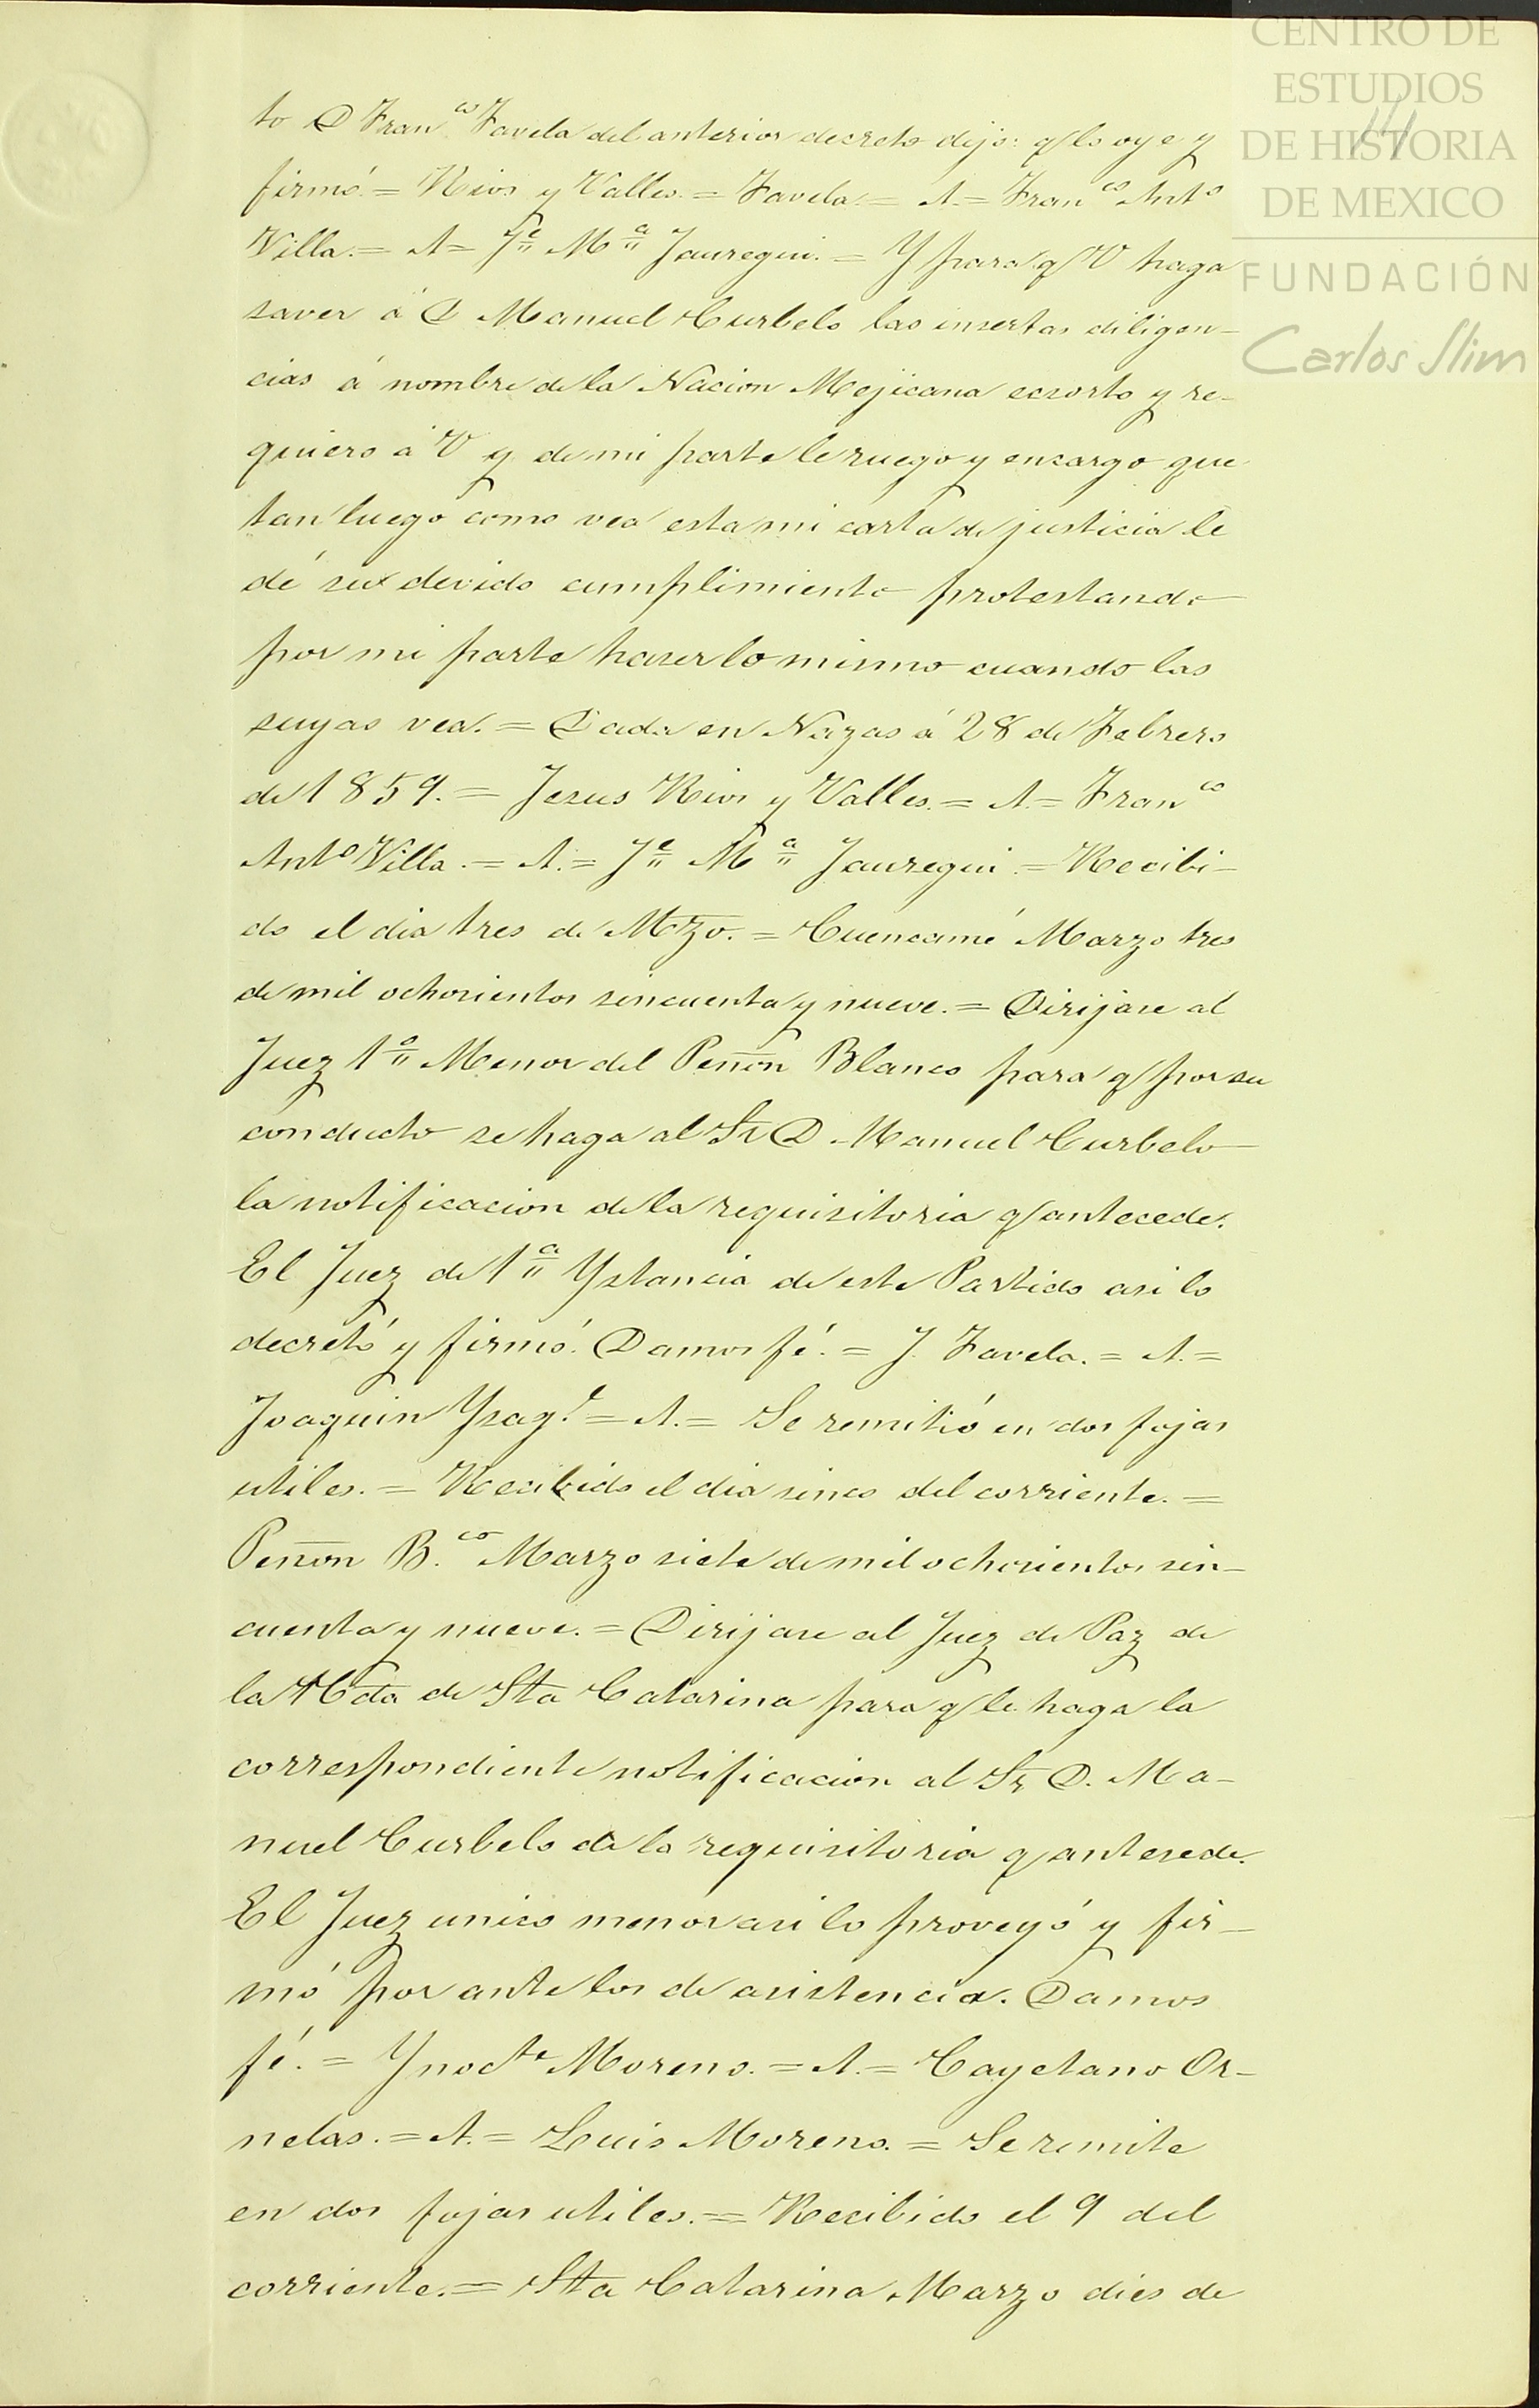 CENTRO DE
ESTUDIOS
DE HISTORIA
DE MEXICO
FUNDACIÓN
Carlos Slim
to D Fran.co Favela del anterior decreto dijo: q lo oye y
firmó. = Rios y Valles. = Favela. = A. = Franco Anto
Villa. = A = Je Ma Jauregui. = Y para q V haga
saver á D Manuel Curbelo las insertas diligen-
cias á nombre de la Nacion Mejicana ecsorto y re-
quiero á V y de mi parte le ruego y encargo que
tan luego como vea esta mi carta de justicia le
dé su devido cumplimiento protestando
por mi parte haser lo mismo cuando las
suyas vea. = Dada en Nazas á 28 de Febrero
de 1859. = Jesus Rios y Valles. = A. = Franco
Anto Villa. = A. = Je Ma Jauregui. = Recibi-
do el dia tres de Mzo. = Cuencamé Marzo tres
de mil ochosientos sincuenta y nueve. = Dirijase al
Juez 1o Menor del Peñon Blanco para q por su
conducto se haga al Sr D Manuel Curbelo
la notificacion de la requisitoria q antecede.
El Juez de 1a Ystancia de este Partido asi lo
decretó y firmó. Damos fé. = J. Favela. = A. =
Joaquin Ysag.e = A. = Se remitió en dos fojas
utiles. = Recibido el dia sinco del corriente. =
Peñon B.co Marzo siete de mil ochosientos sin-
cuenta y nueve. = Dirijase al Juez de Paz de
la Hda de Sta Catarina para q le haga la
correspondiente notificacion al Sr D. Ma-
nuel Curbelo de la requisitoria q antesede.
El Juez unico menor asi lo proveyó y fir-
mó por ante los de asistencia. Damos
fé. = Ynocte Moreno. = A. = Cayetano Or-
nelas. = A. = Luis Moreno. = Se remite
en dos fojas utiles. = Recibido el 9 del
corriente. = Sta Catarina Marzo dies de